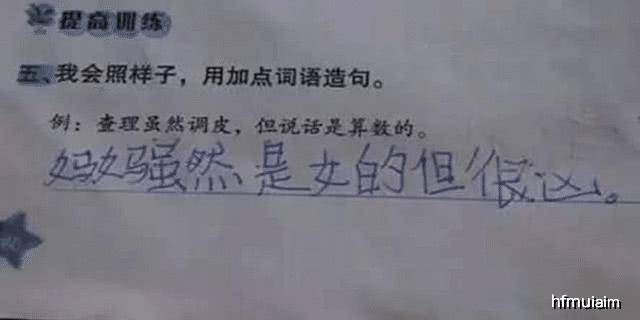 提高训练
五、我会照样子，用加点词语造句。
例：查理虽然调皮，但说话是算数的。
妈妈虽然是女的但很凶。
hfmuiaim